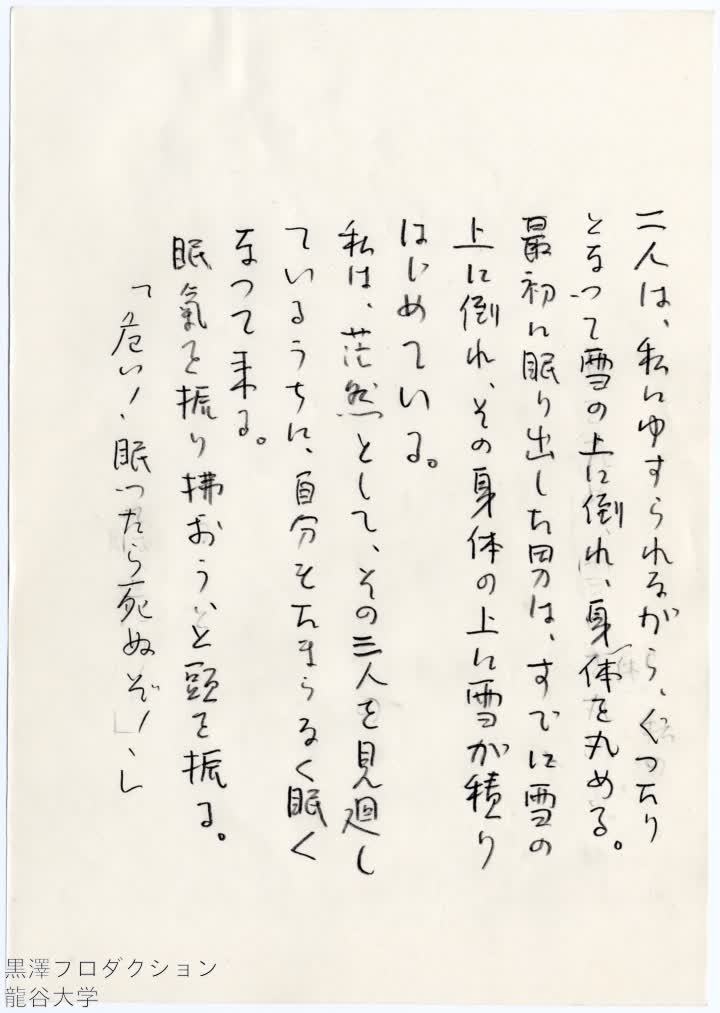 二人は、私にゆすられながら、くつたり
となつて雪の上に倒れ、身体を丸める。
最初に眠り出した男は、すでに雪の
上に倒れ、その身体の上に雪が積り
はじめている。
私は、茫然として、その三人を見廻し
ているうちに、自分もたまらなく眠く
なつて来る。
眠氣を振り拂おう、と頭を振る。
「危い！眠つたら死ぬぞ！」
黒澤プロダクション
龍谷大学